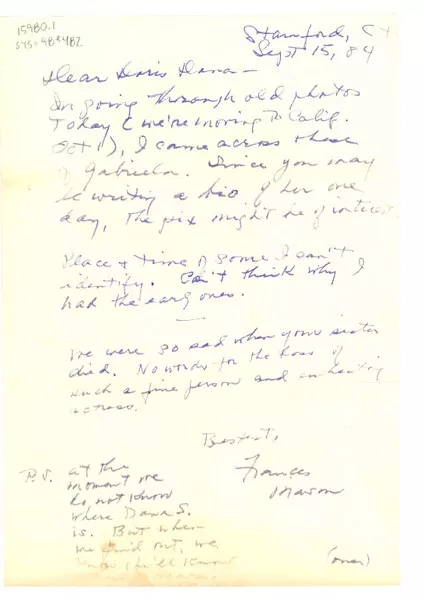 15980.1
Stamford, Ct
Sept 15, 84
Dear Doris Dana –
In going through old photos
today (we're moving to Calif.
Oct 1), I came across these
of Gabriela. Since you may
be writing a bio of her one
day, the pix might be of interest.
Place & time of some I can't
identify. Can't think why I
had the early ones.
We were so sad when your sister
died. No words for the loss of
such a fine person and
actress.
Bestest,
Frances
Mason
P.S. at the
moment we
do not know
where Dana S.
is. But when
we find out, we
know you'll know
(over)